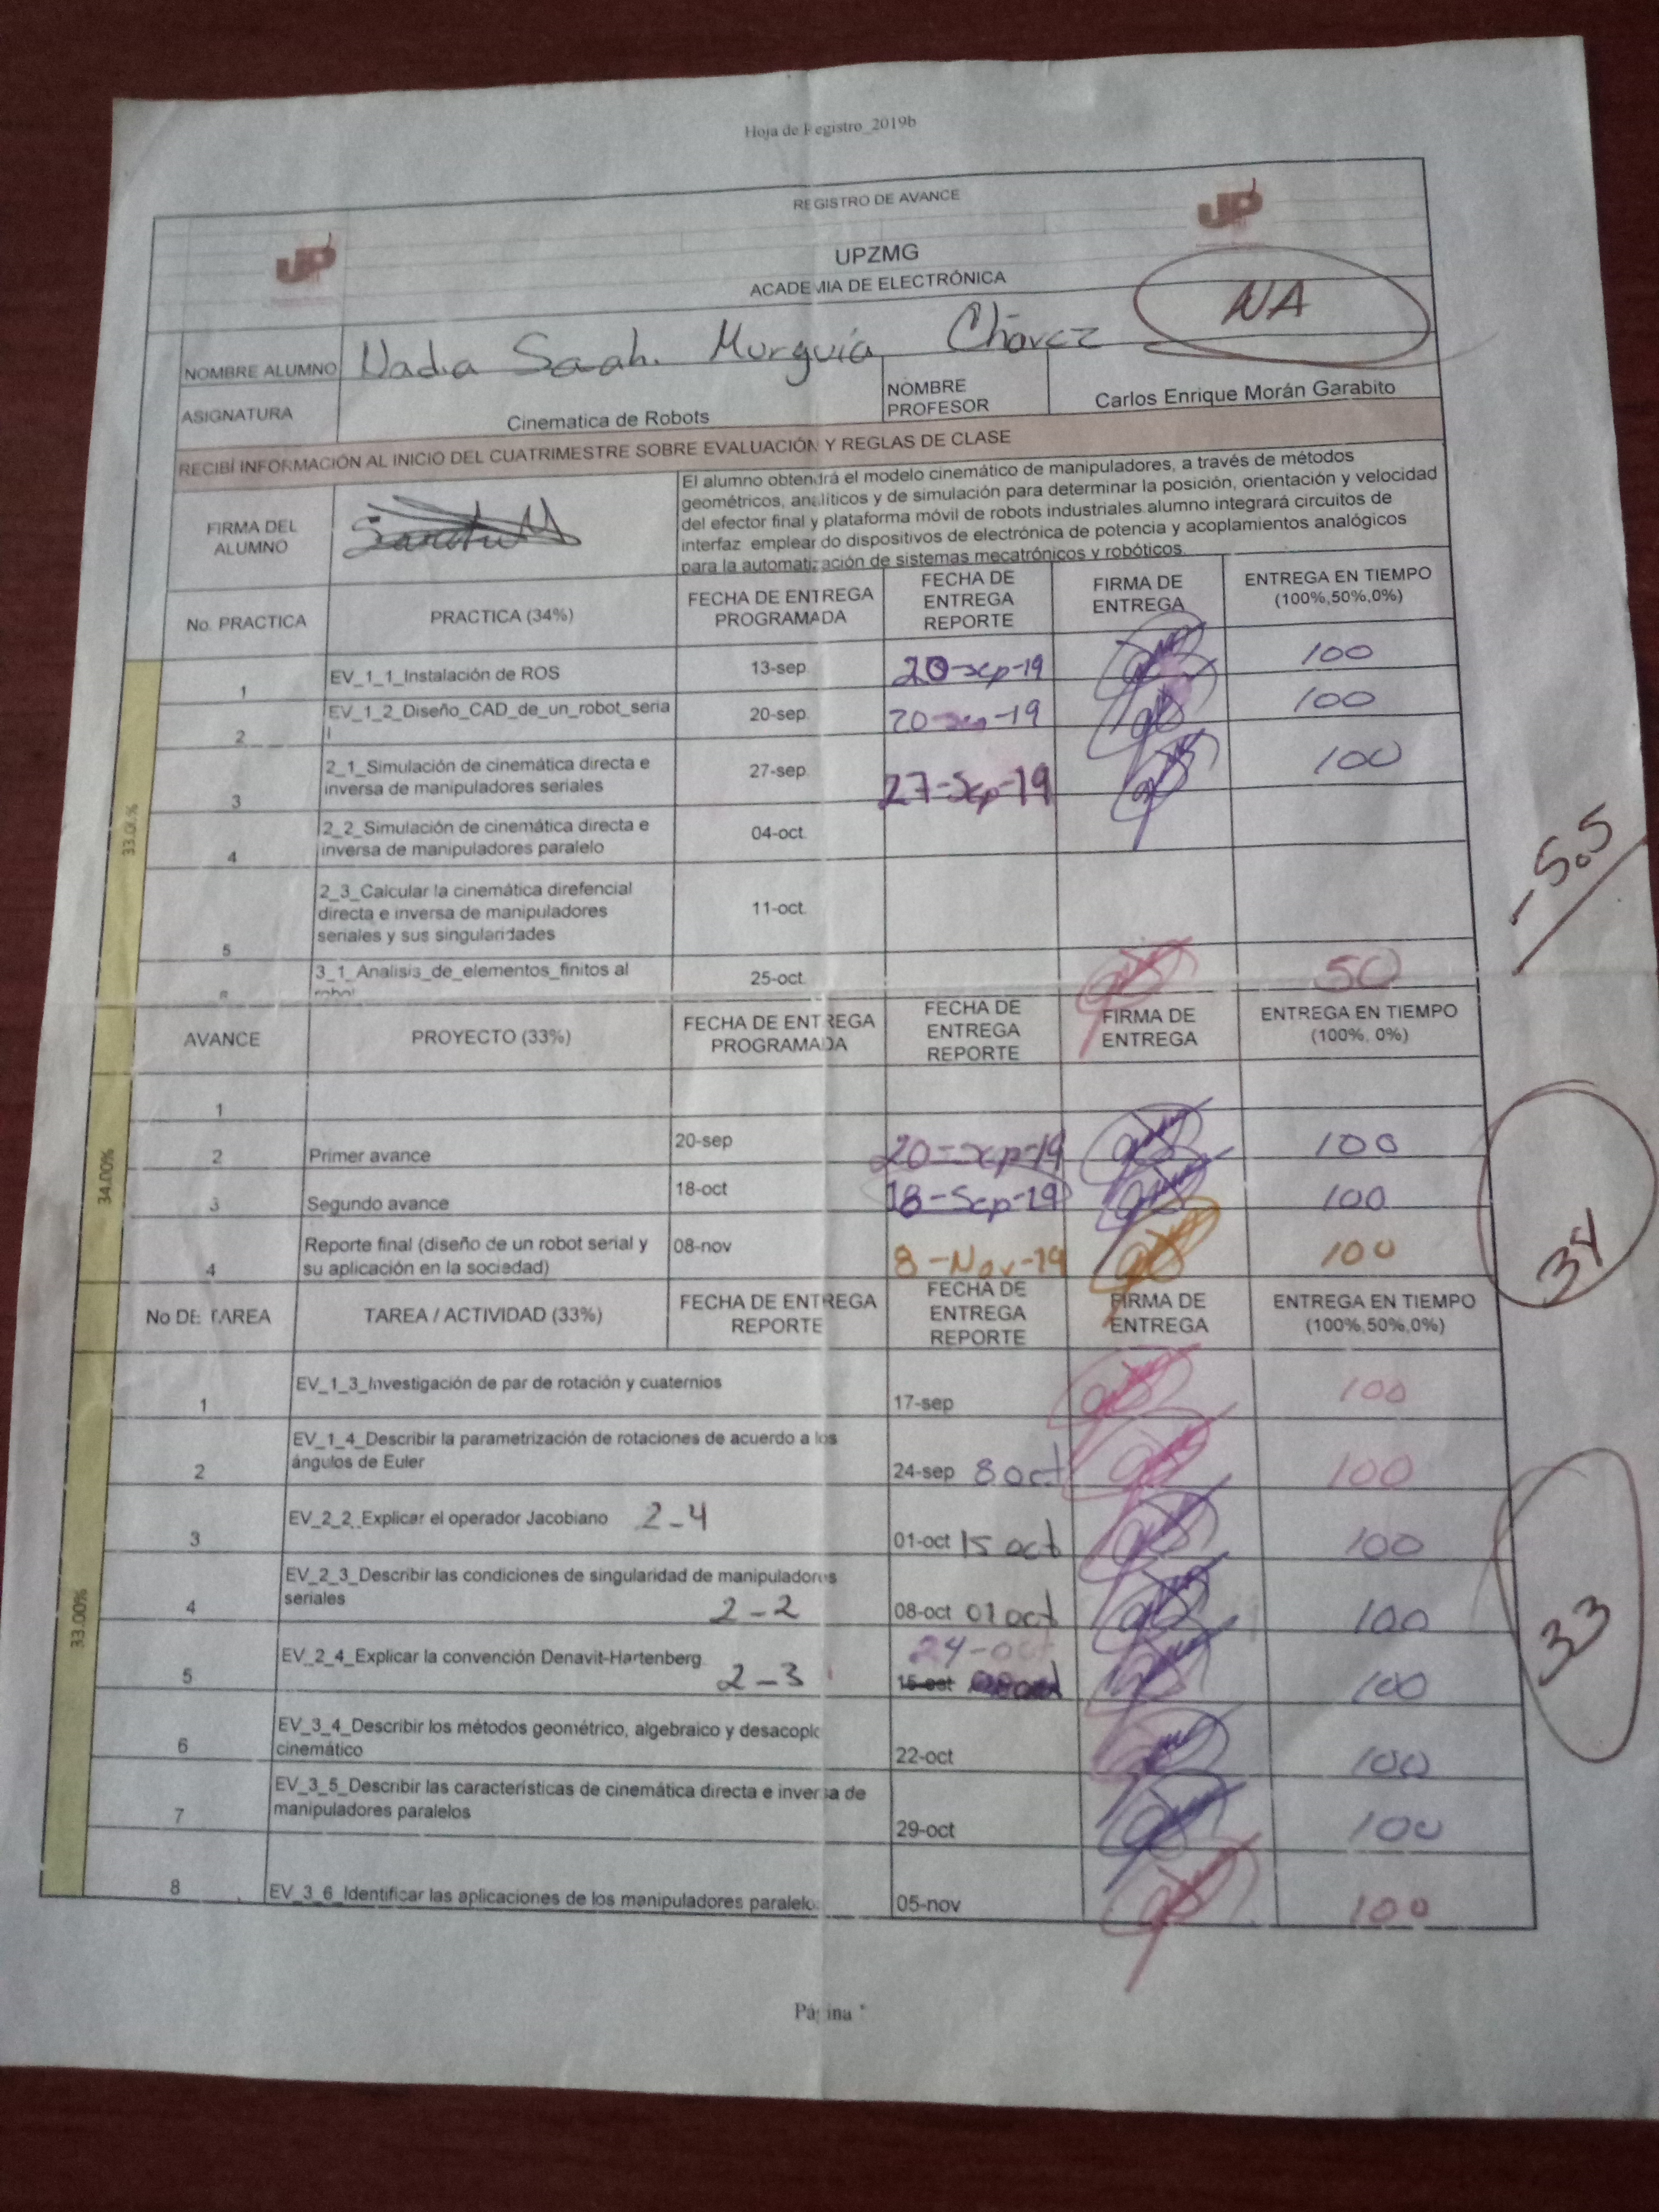 Hoja de Registro_2019b
REGISTRO DE AVANCE
UP UP
UPZMG
ACADEMIA DE ELECTRÓNICA
NA
NOMBRE ALUMNO Nadia Saahi Murguía Chávez
ASIGNATURA Cinematica de Robots NOMBRE PROFESOR Carlos Enrique Morán Garabito
RECIBÍ INFORMACIÓN AL INICIO DEL CUATRIMESTRE SOBRE EVALUACIÓN Y REGLAS DE CLASE
FIRMA DEL ALUMNO
El alumno obtendrá el modelo cinemático de manipuladores, a través de métodos
geométricos, analíticos y de simulación para determinar la posición, orientación y velocidad
del efector final y plataforma móvil de robots industriales.alumno integrará circuitos de
interfaz emplear do dispositivos de electrónica de potencia y acoplamientos analógicos
para la automatización de sistemas mecatrónicos y robóticos.
No. PRACTICA PRACTICA (34%) FECHA DE ENTREGA PROGRAMADA FECHA DE ENTREGA REPORTE FIRMA DE ENTREGA ENTREGA EN TIEMPO (100%,50%,0%)
33.00%
1 EV_1_1_Instalación de ROS 13-sep. 20-sep-19 100
2 EV_1_2_Diseño_CAD_de_un_robot_seria
l 20-sep. 20-sep-19 100
3 2_1_Simulación de cinemática directa e
inversa de manipuladores seriales 27-sep. 27-Sep-19 100
4 2_2_Simulación de cinemática directa e
inversa de manipuladores paralelo 04-oct.
5 2_3_Calcular la cinemática direfencial
directa e inversa de manipuladores
seriales y sus singularidades 11-oct.
3_1_Analisis_de_elementos_finitos al
25-oct. 50
-5.5
AVANCE PROYECTO (33%) FECHA DE ENTREGA PROGRAMADA FECHA DE ENTREGA REPORTE FIRMA DE ENTREGA ENTREGA EN TIEMPO (100%, 0%)
34.00%
1
2 Primer avance 20-sep 20-sep-19 100
3 Segundo avance 18-oct 18-Sep-19 100
4 Reporte final (diseño de un robot serial y
su aplicación en la sociedad) 08-nov 8-Nov-19 100
34
No DE TAREA TAREA / ACTIVIDAD (33%) FECHA DE ENTREGA REPORTE FECHA DE ENTREGA REPORTE FIRMA DE ENTREGA ENTREGA EN TIEMPO (100%,50%,0%)
33.00%
1 EV_1_3_Investigación de par de rotación y cuaternios 17-sep 100
2 EV_1_4_Describir la parametrización de rotaciones de acuerdo a los
ángulos de Euler 24-sep 8 oct 100
3 EV_2_2_Explicar el operador Jacobiano 2-4 01-oct 15 oct 100
4 EV_2_3_Describir las condiciones de singularidad de manipuladores
seriales 2-2 08-oct 01 oct 100
5 EV_2_4_Explicar la convención Denavit-Hartenberg 2-3 24-oct 15-oct 100
6 EV_3_4_Describir los métodos geométrico, algebraico y desacoplo
cinemático 22-oct 100
7 EV_3_5_Describir las características de cinemática directa e inversa de
manipuladores paralelos 29-oct 100
8 EV_3_6_Identificar las aplicaciones de los manipuladores paralelos 05-nov 100
33
Página